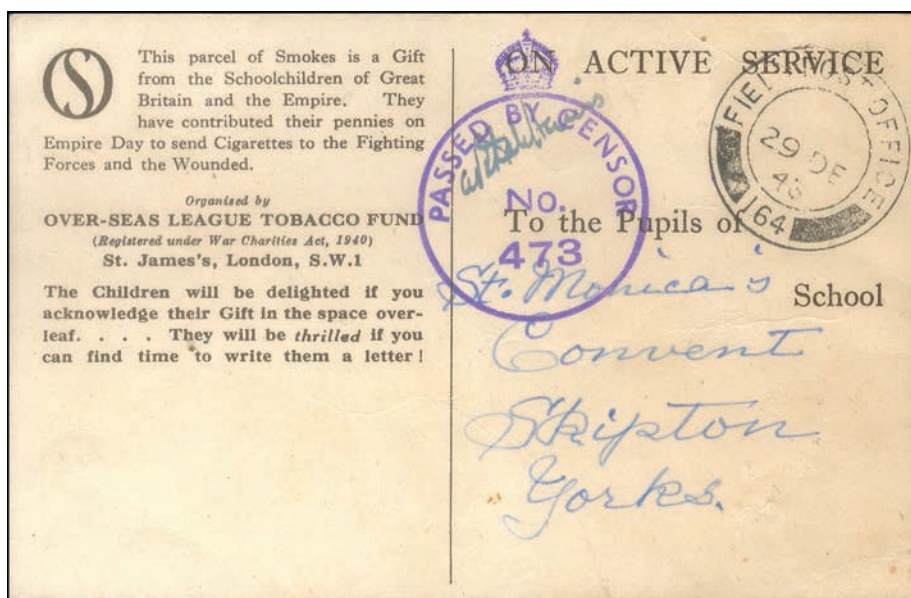 OS
This parcel of Smokes is a Gift
from the Schoolchildren of Great
Britain and the Empire. They
have contributed their pennies on
Empire Day to send Cigarettes to the Fighting
Forces and the Wounded.
Organised by
OVER-SEAS LEAGUE TOBACCO FUND
(Registered under War Charities Act, 1940)
St. James's, London, S.W.1
The Children will be delighted if you
acknowledge their Gift in the space over-
leaf. . . . They will be thrilled if you
can find time to write them a letter!
ON ACTIVE SERVICE
PASSED BY CENSOR
No.
473
FIELD POST OFFICE
29 DE
43
164
To the Pupils of
St. Monica's
School
Convent
Skipton
Yorks.